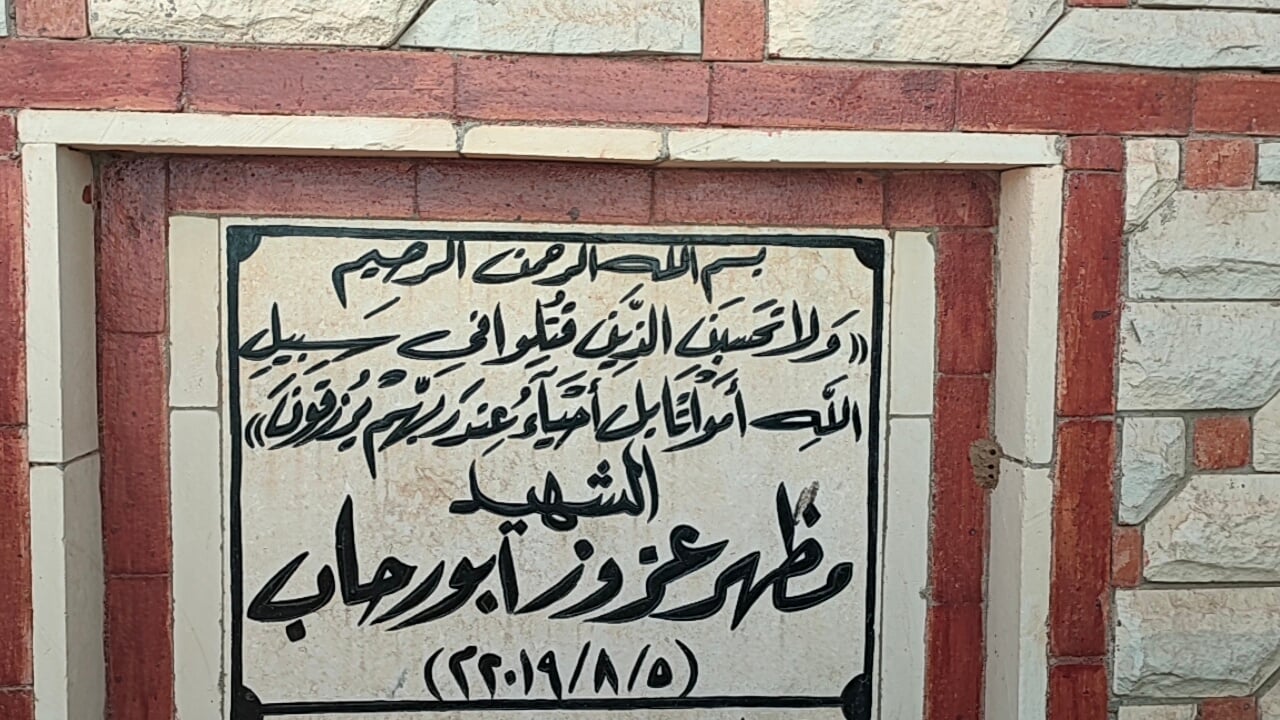 بسم الله الرحمن الرحيم
«وَلا تَحْسَبَنَّ الَّذِينَ قُتِلُوا فِي سَبِيلِ
اللَّهِ أَمْوَاتًا بَلْ أَحْيَاءٌ عِندَ رَبِّهِمْ يُرْزَقُونَ»
الشهيد
مظهر عزوز أبورحاب
(٢٠١٩/٨/٥م)